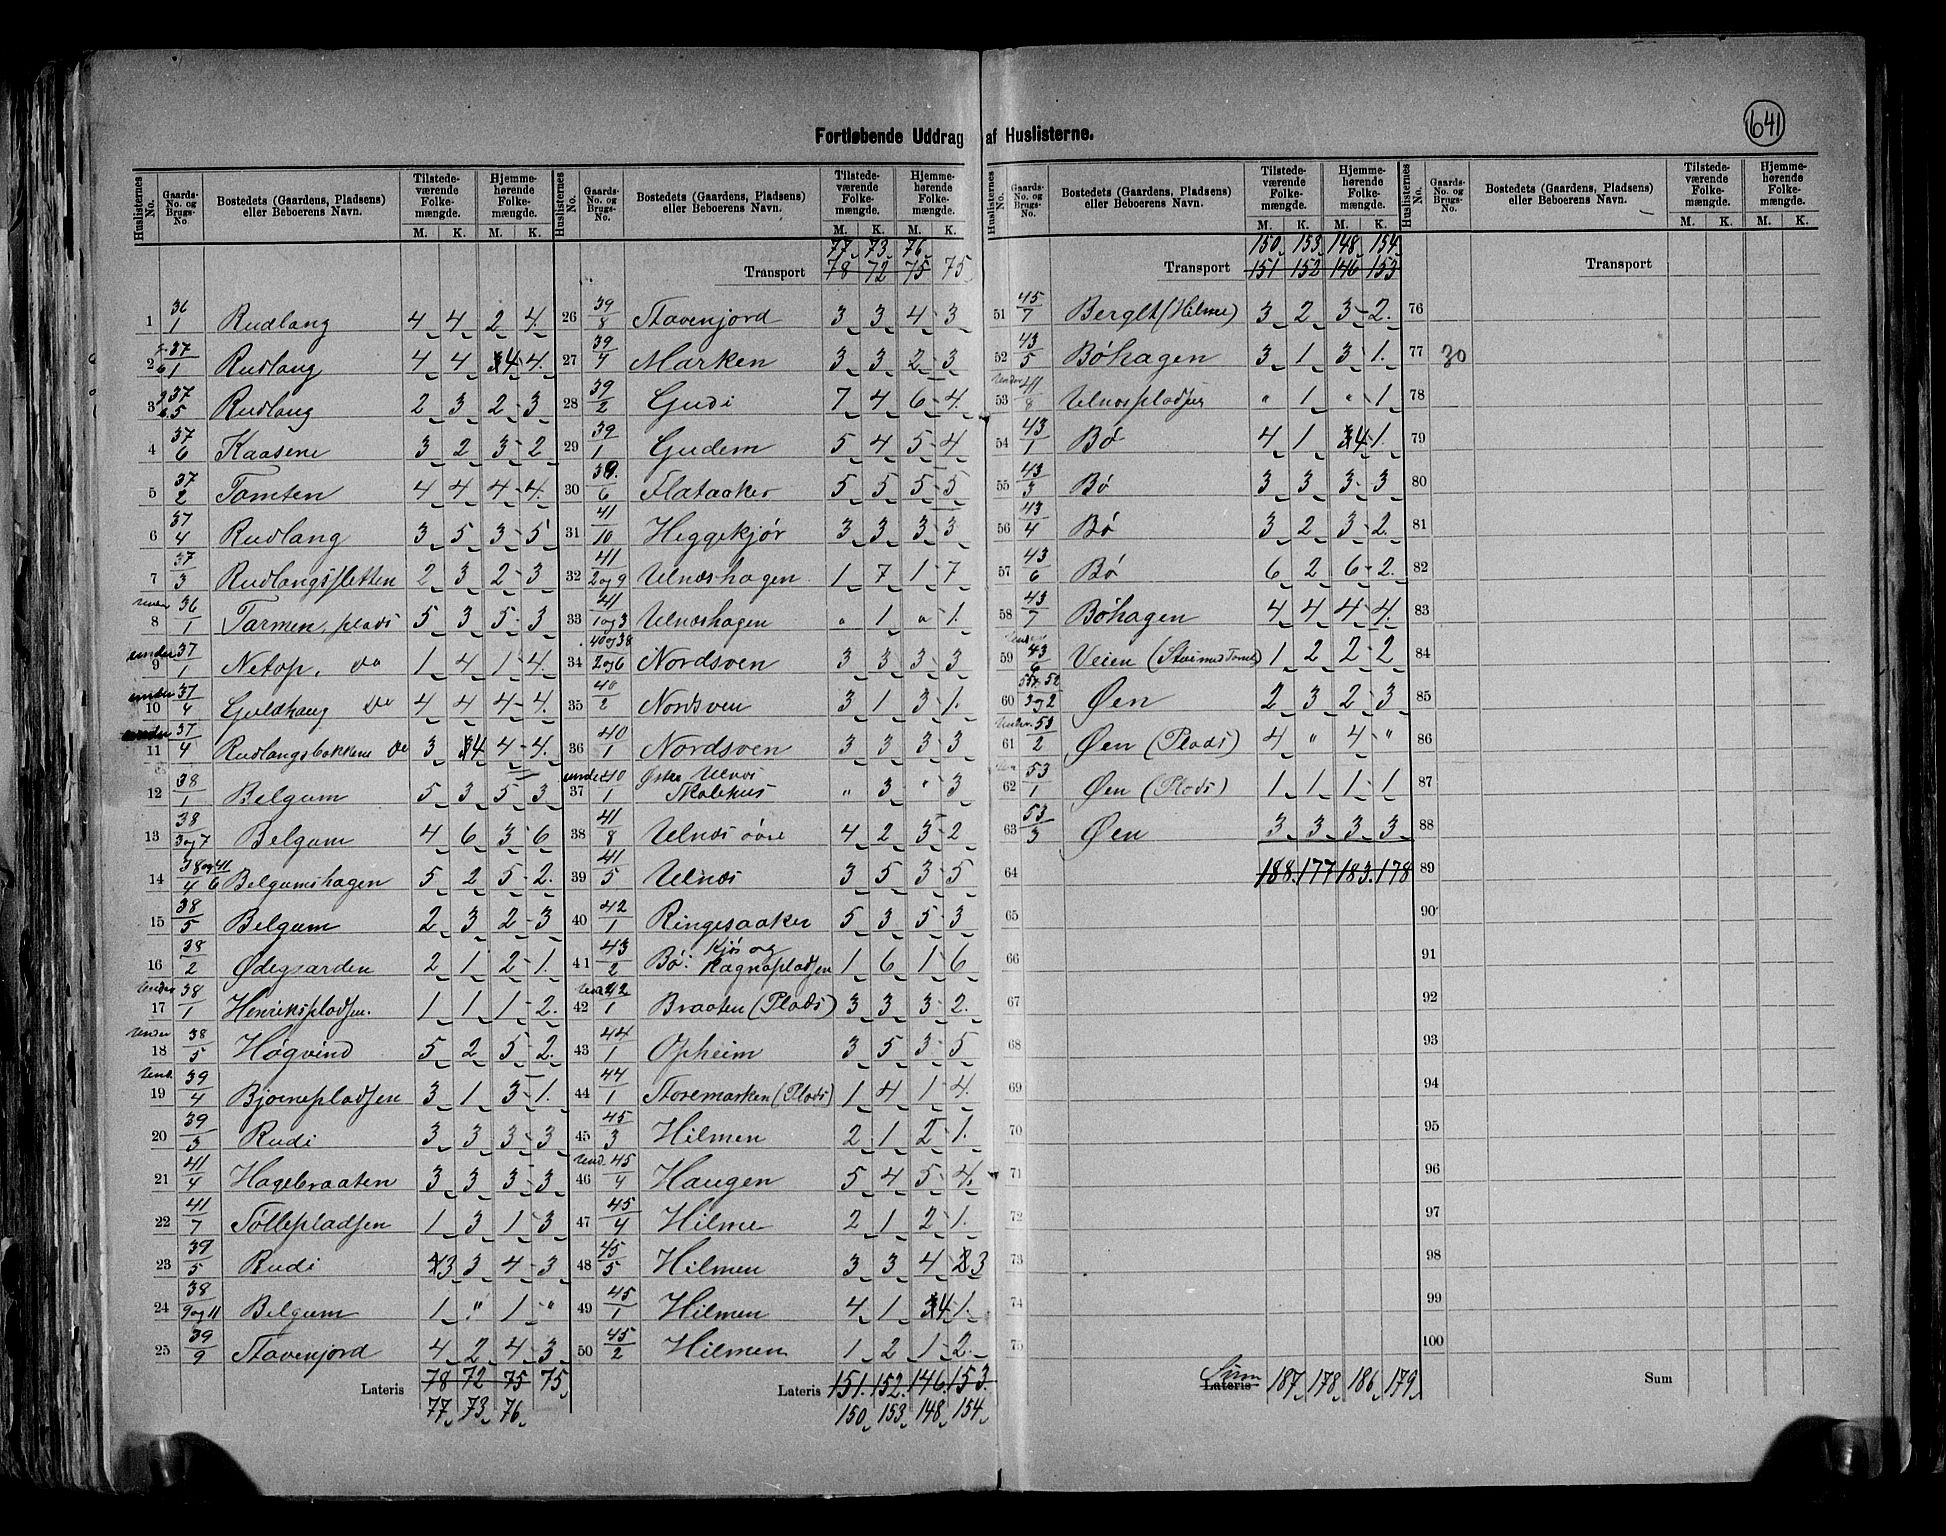 641
Fortløbende Uddrag af Huslisterne.
Huslisternes No. | Gaards-No. og Brugs-No | Bostedets (Gaardens, Pladsens) eller Beboerens Navn. | Tilstedeværende Folkemængde. M. K. | Hjemmehørende Folkemængde. M. K.
1 36/1 Rudlang 4 4 2 4
2 37/1 Rudlang 4 4 4 4
3 37/5 Rudlang 2 3 2 3
4 37/6 Kaasene 3 2 3 2
5 37/2 Tomten 4 4 4 4
6 37/4 Rudlang 3 5 3 5
7 37/3 Rudlangsletten 2 3 2 3
8 under 36/1 Tarmen, plads 5 3 5 3
9 under 37/1 Netop. Do 1 4 1 4
10 under 37/4 Guldhaug Do 4 4 4 4
11 under 37/4 Rudlangsbakkene Do 3 4 4 4
12 38/1 Belgum 5 3 5 3
13 38/3 og 7 Belgum 4 6 3 6
14 38 og 41/4 6 Belgumshagen 5 2 5 2
15 38/5 Belgum 2 3 2 3
16 38/2 Ødegaarden 2 1 2 1
17 Under 38/1 Henrikspladsen. 1 1 1 2
18 Under 38/5 Høgvind 5 2 5 2
19 Und. 39/4 Bjørnepladsen 3 1 3 1
20 39/3 Rudi 3 3 3 3
21 41/4 Hagebraaten 3 3 3 3
22 41/7 Tollepladsen 1 3 1 3
23 39/5 Rudi 3 3 4 3
24 38/9 og 11 Belgum 1 " 1 "
25 39/9 Stavenjord 4 2 4 3
Lateris 78 72 75 75
77 73 76
Huslisternes No. | Gaards-No. og Brugs-No. | Bostedets (Gaardens, Pladsens) eller Beboerens Navn. | Tilstedeværende Folkemængde. M. K. | Hjemmehørende Folkemængde. M. K.
77 73 76
Transport 78 72 75 75
26 39/8 Stavenjord 3 3 4 3
27 39/4 Marken 3 3 2 3
28 39/2 Gudi 7 4 6 4
29 39/1 Gudem 5 4 5 4
30 39/6 Flataaker 5 5 5 5
31 41/10 Heggekjør 3 3 3 3
32 41/2 og 9 Ulnæshagen 1 7 1 7
33 41/1 og 3 Ulnæshagen " 1 " 1
34 40 og 38/2 og 6 Nordsven 3 3 3 3
35 40/2 Nordsven 3 1 3 1
36 40/1 Nordsven 3 3 3 3
37 under 40/1 Østre Ulnæs Skolehus " 3 " 3
38 41/8 Ulnæs øvre 4 2 3 2
39 41/5 Ulnæs 3 5 3 5
40 42/1 Ringesaaker 5 3 5 3
41 43/2 Bø: Kjøs og Ragnapladsen 1 6 1 6
42 Und. 42/1 Braaten (Plads) 3 3 3 2
43 44/1 Opheim 3 5 3 5
44 44/1 Storemarken (Plads) 1 4 1 4
45 45/3 Hilmen 2 1 2 1
46 Und. 45/4 Haugen 5 4 5 4
47 45/4 Hilme 2 1 2 1
48 45/5 Hilmen 3 3 4 3
49 45/1 Hilmen 4 1 4 1
50 45/2 Hilmen 1 2 1 2
Lateris 151 152 146 153
150 153 148 154
Huslisternes No. | Gaards-No. og Brugs-No. | Bostedets (Gaardens, Pladsens) eller Beboerens Navn. | Tilstedeværende Folkemængde. M. K. | Hjemmehørende Folkemængde. M. K.
150 153 148 154
Transport 151 152 146 153
51 45/7 Berglt (Hilme) 3 2 3 2
52 43/5 Bøhagen 3 1 3 1
53 Under 41/8 Ulnæspladsen " 1 " 1
54 43/1 Bø 4 1 4 1
55 43/3 Bø 3 3 3 3
56 43/4 Bø 3 2 3 2
57 43/6 Bø 6 2 6 2
58 43/7 Bøhagen 4 4 4 4
59 Under 43/6 Veien 1 2 2 2
60 52/3 og 2 Øen 2 3 2 3
61 Under 53/2 Øen (Plads) 4 " 4 "
62 53/1 Øen (Plads) 1 1 1 1
63 53/3 Øen 3 3 3 3
64 188 177 183 178
65
66
67
68
69
70
71
72
73
74
75
Lateris Sum 187 178 186 179
Huslisternes No. | Gaards-No. og Brugs-No. | Bostedets (Gaardens, Pladsens) eller Beboerens Navn. | Tilstedeværende Folkemængde. M. K. | Hjemmehørende Folkemængde. M. K.
Transport
76
77 30
78
79
80
81
82
83
84
85
86
87
88
89
90
91
92
93
94
95
96
97
98
99
100
Sum